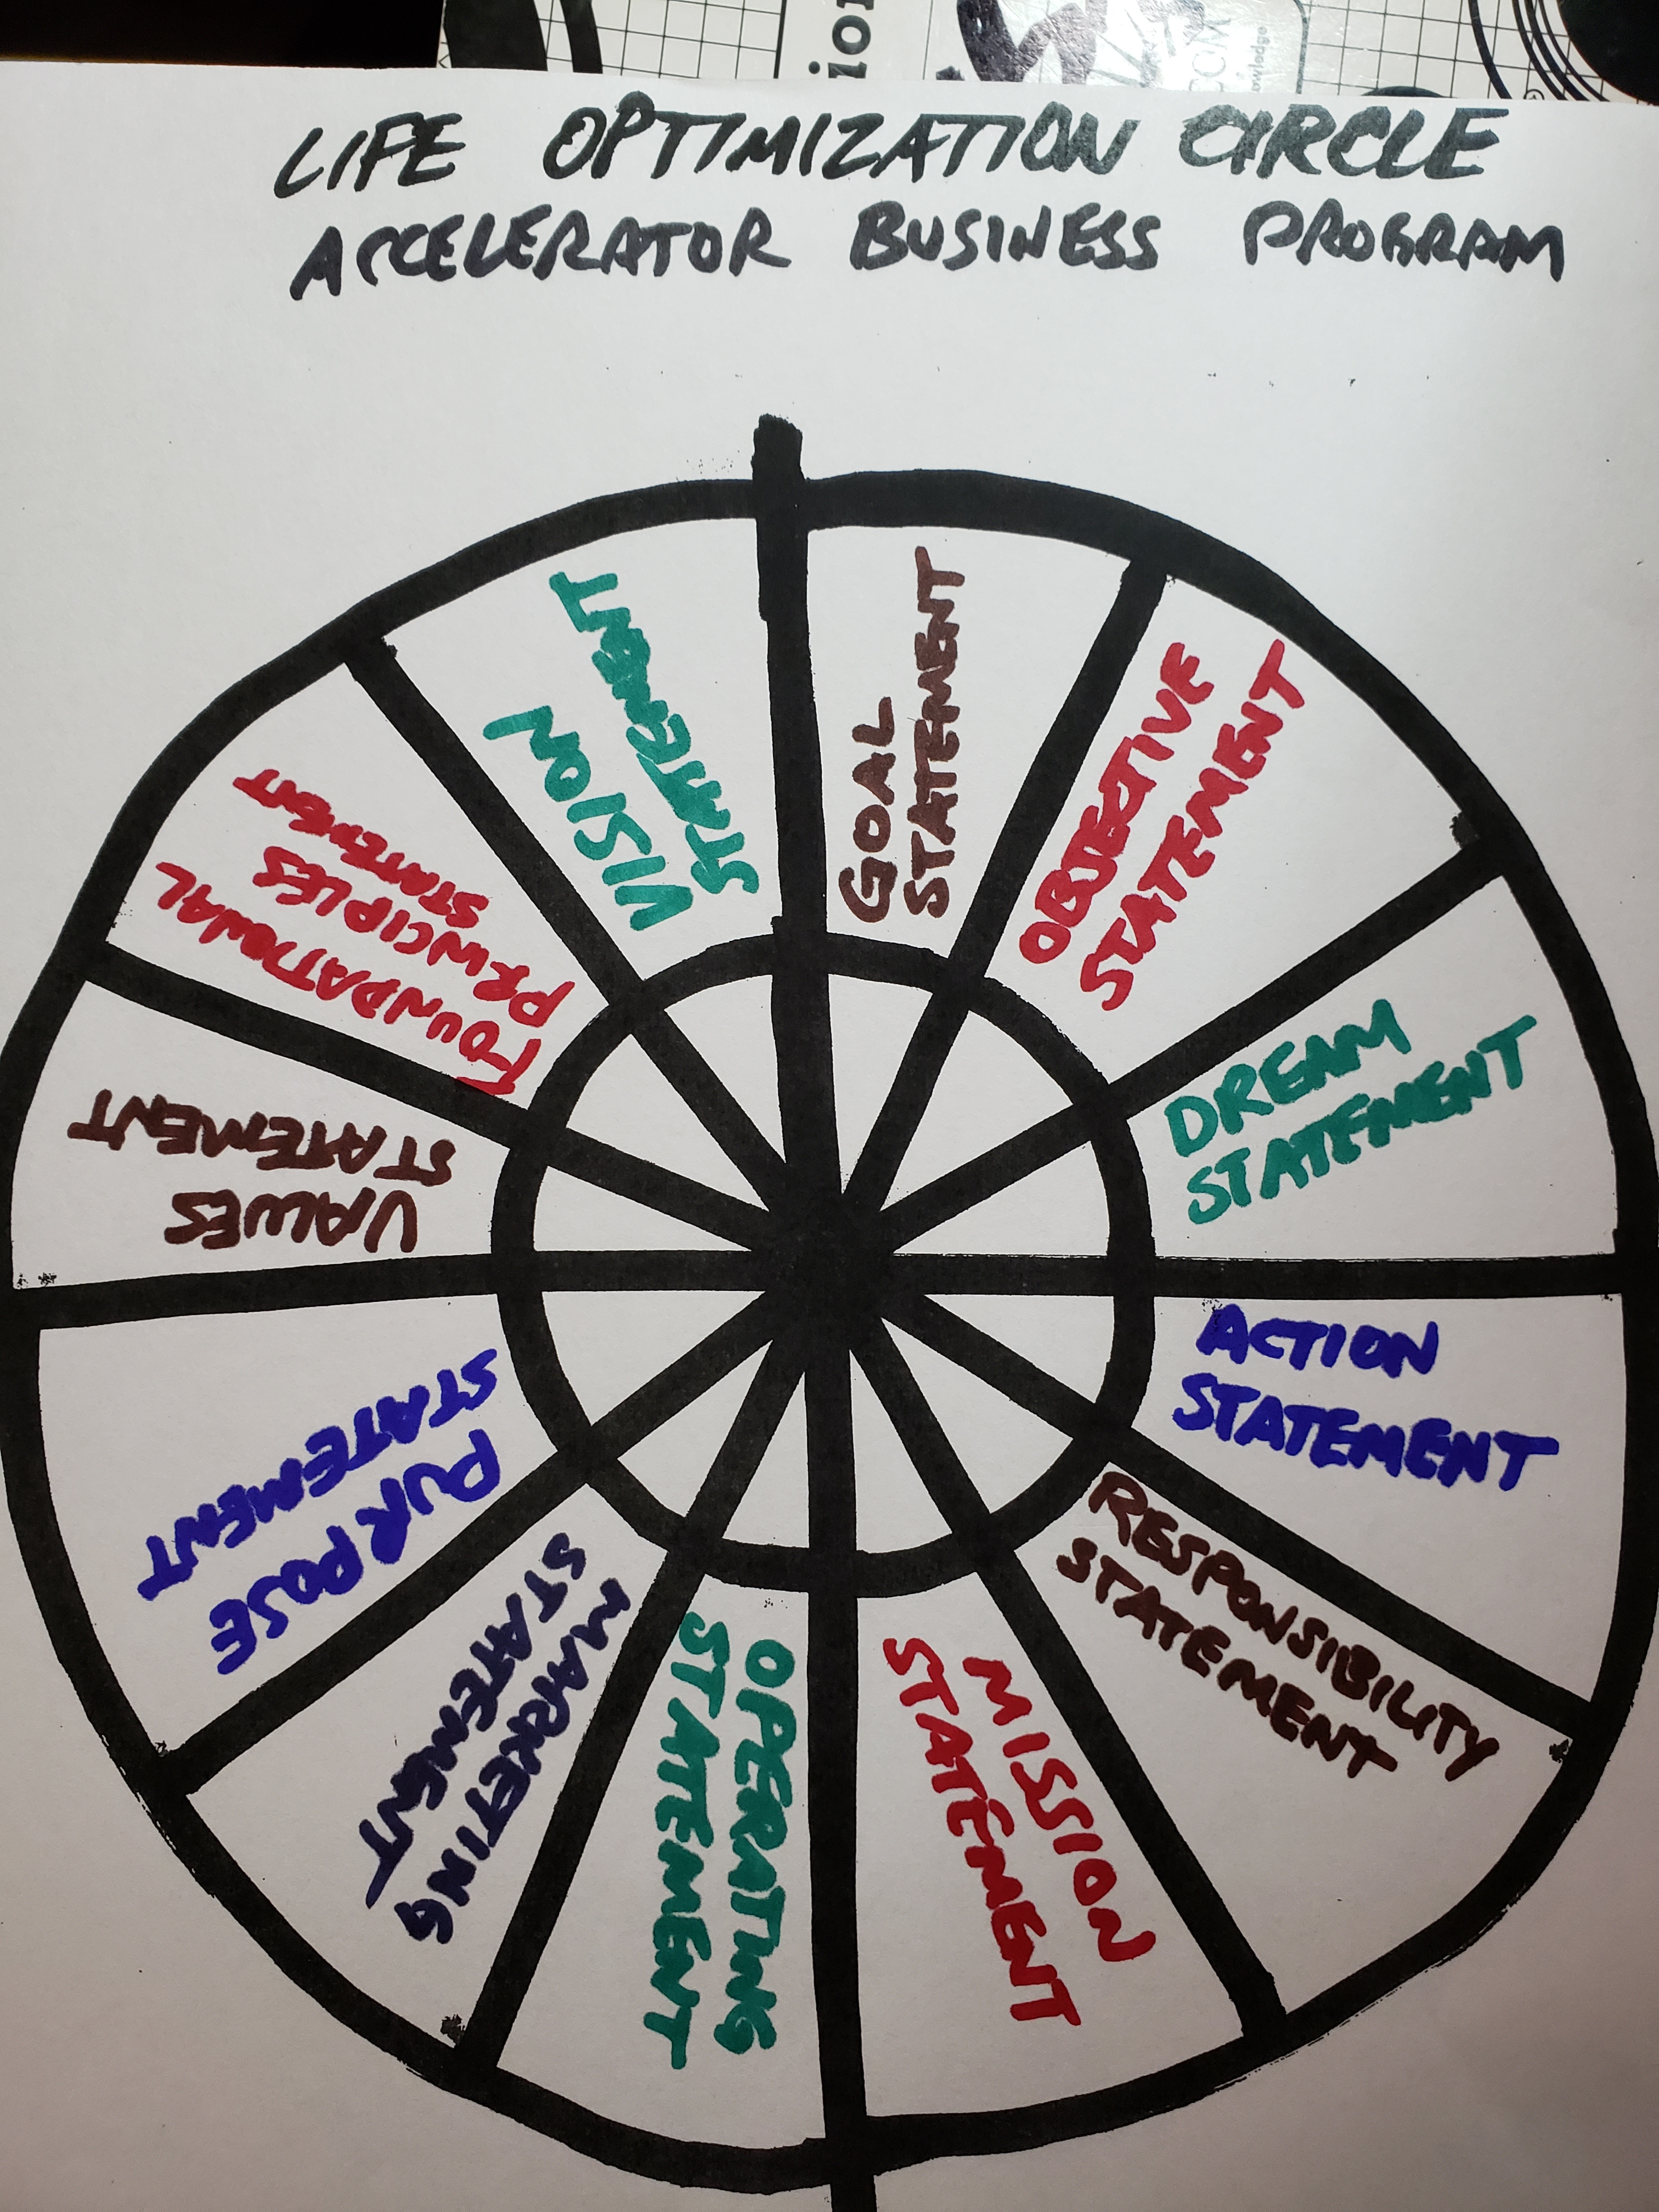 ion
LIFE OPTIMIZATION CIRCLE
ACCELERATOR BUSINESS PROGRAM
GOAL
STATEMENT
OBJECTIVE
STATEMENT
DREAM
STATEMENT
ACTION
STATEMENT
RESPONSIBILITY
STATEMENT
MISSION
STATEMENT
OPERATING
STATEMENT
MARKETING
STATEMENT
PURPOSE
STATEMENT
VALUES
STATEMENT
FOUNDATIONAL
PRINCIPLES
STATEMENT
VISION
STATEMENT